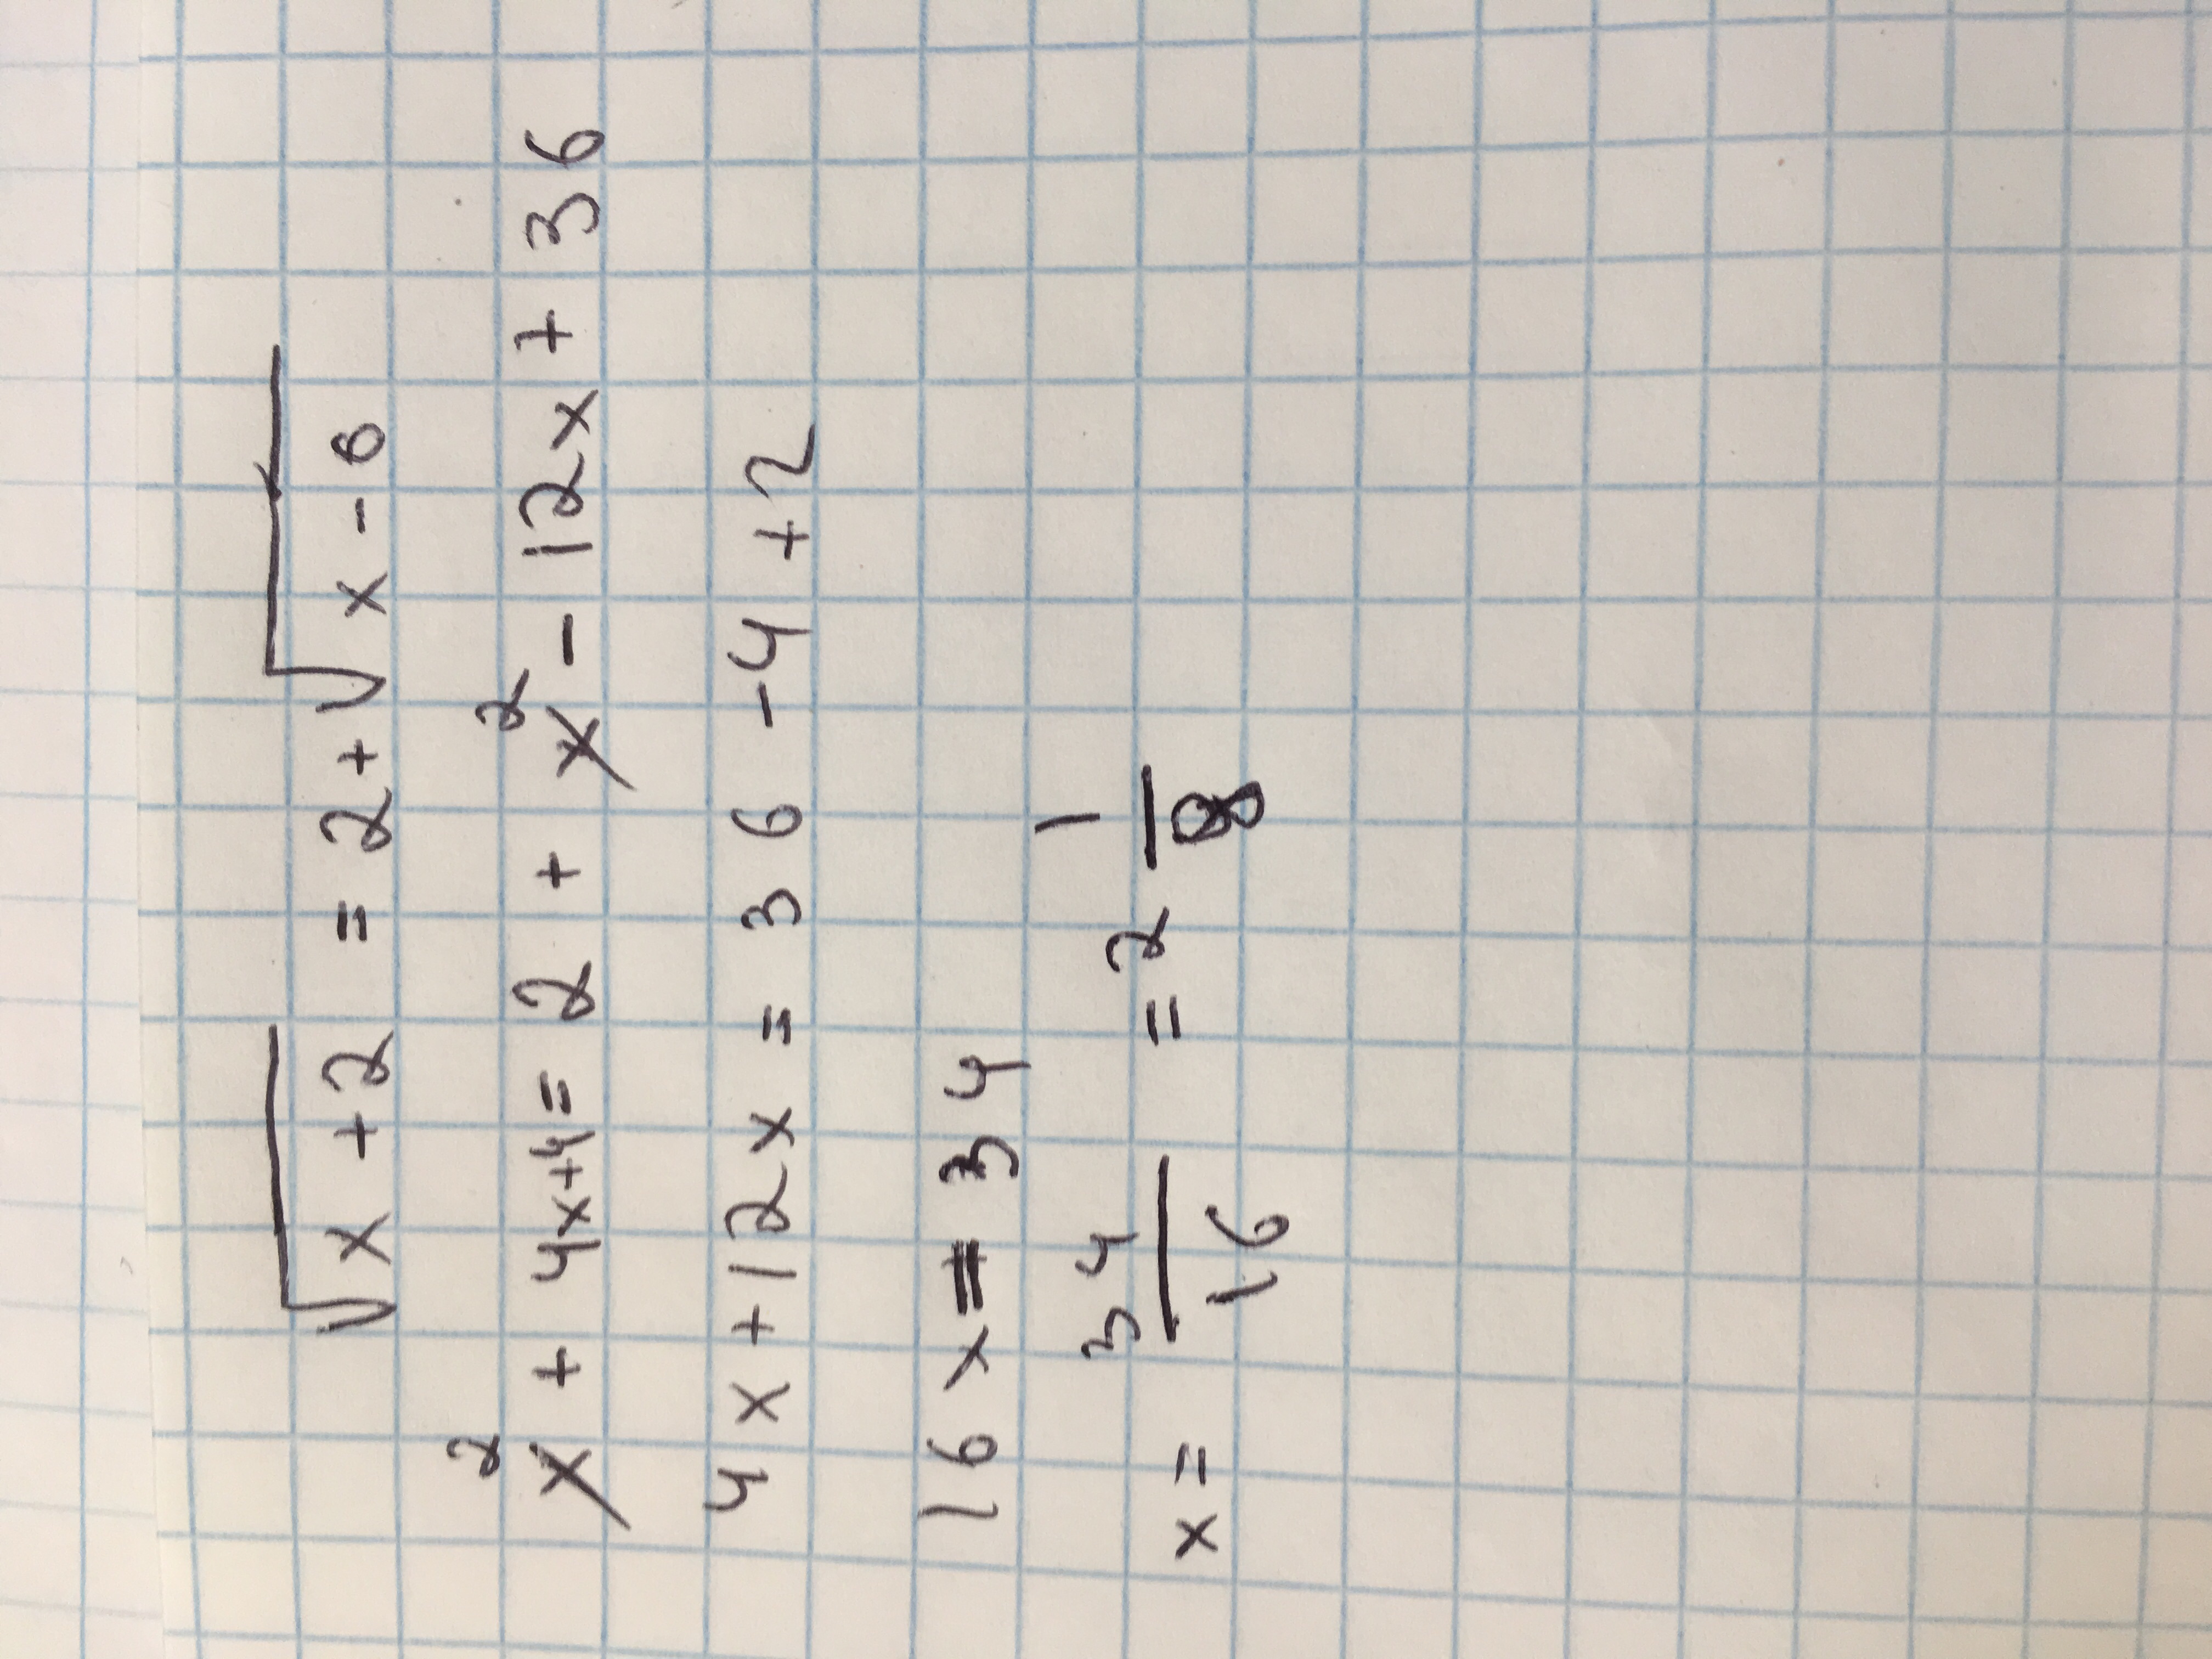 √x+2 = 2+√x-6
x² + 4x+4= 2 + x² - 12x + 36
4x+12x = 36 -4 +2
16x = 34
x = 34/16 = 2 1/8